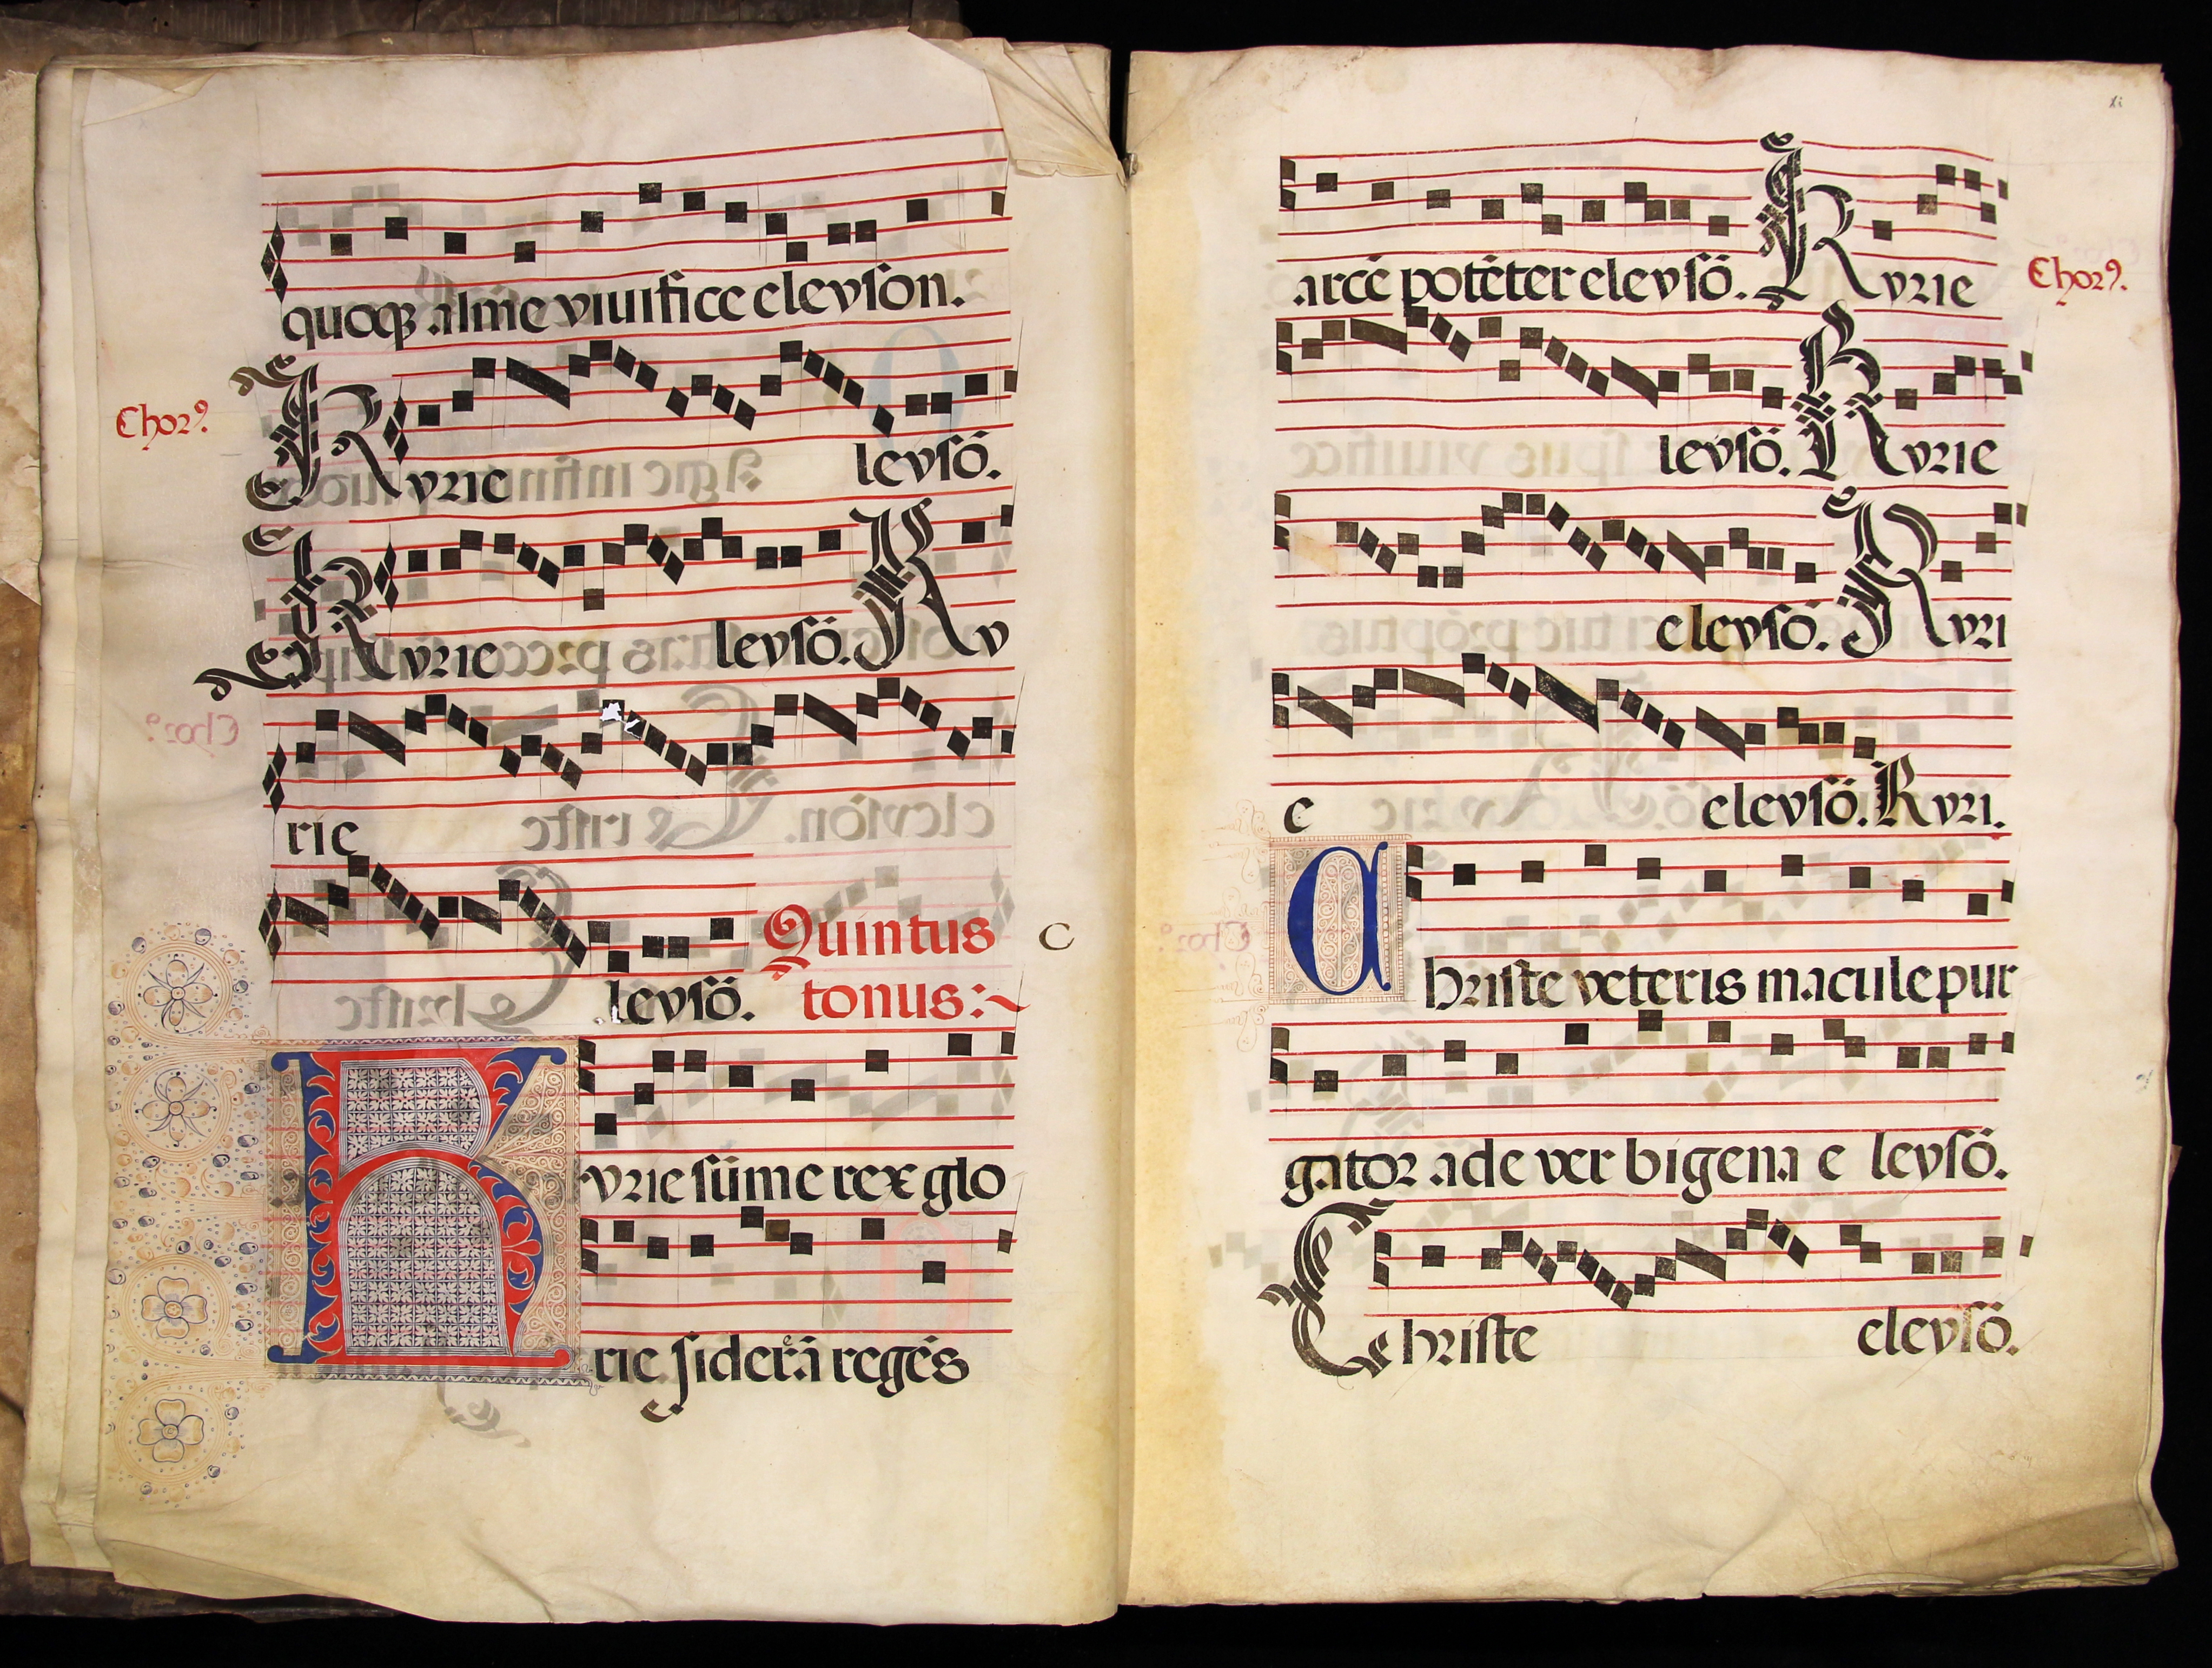 quoqꝫ alme viuifice eleyson.
Chorꝰ.
Kyrie leysō.
Kyrie leysō. Ky
rie
leysō.
Quintus
tonus:~
c
Kyrie sūme rex glo
rie siderā regēs
xi
arcē potēter eleysō. Kyrie
Chorꝰ.
leysō. Kyrie
eleysō. Kyri
e eleysō. Kyri.
Christe veteris macule pur
gator ade verbigena e leysō.
Christe eleysō.